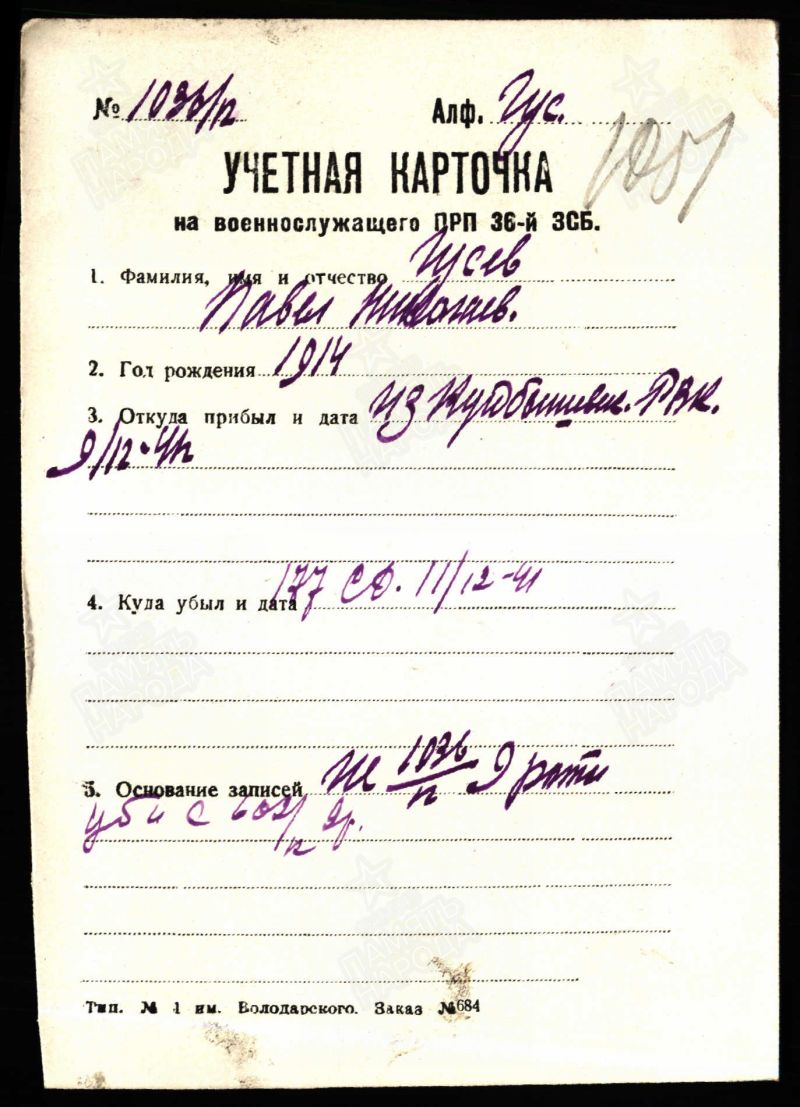 № 1036/п Алф. Гус.
1051
УЧЕТНАЯ КАРТОЧКА
на военнослужащего ПРП 36-й ЗСБ.
1. Фамилия, имя и отчество Гусев
Павел Николаев.
2. Год рождения 1914
3. Откуда прибыл и дата из Куйбышевск. РВК.
9/12-41г
4. Куда убыл и дата 177 СД. 11/12-41
5. Основание записей 1036/п 9 роты
9р.
Тип. № 1 им. Володарского. Заказ №684
ПАМЯТЬ НАРОДА